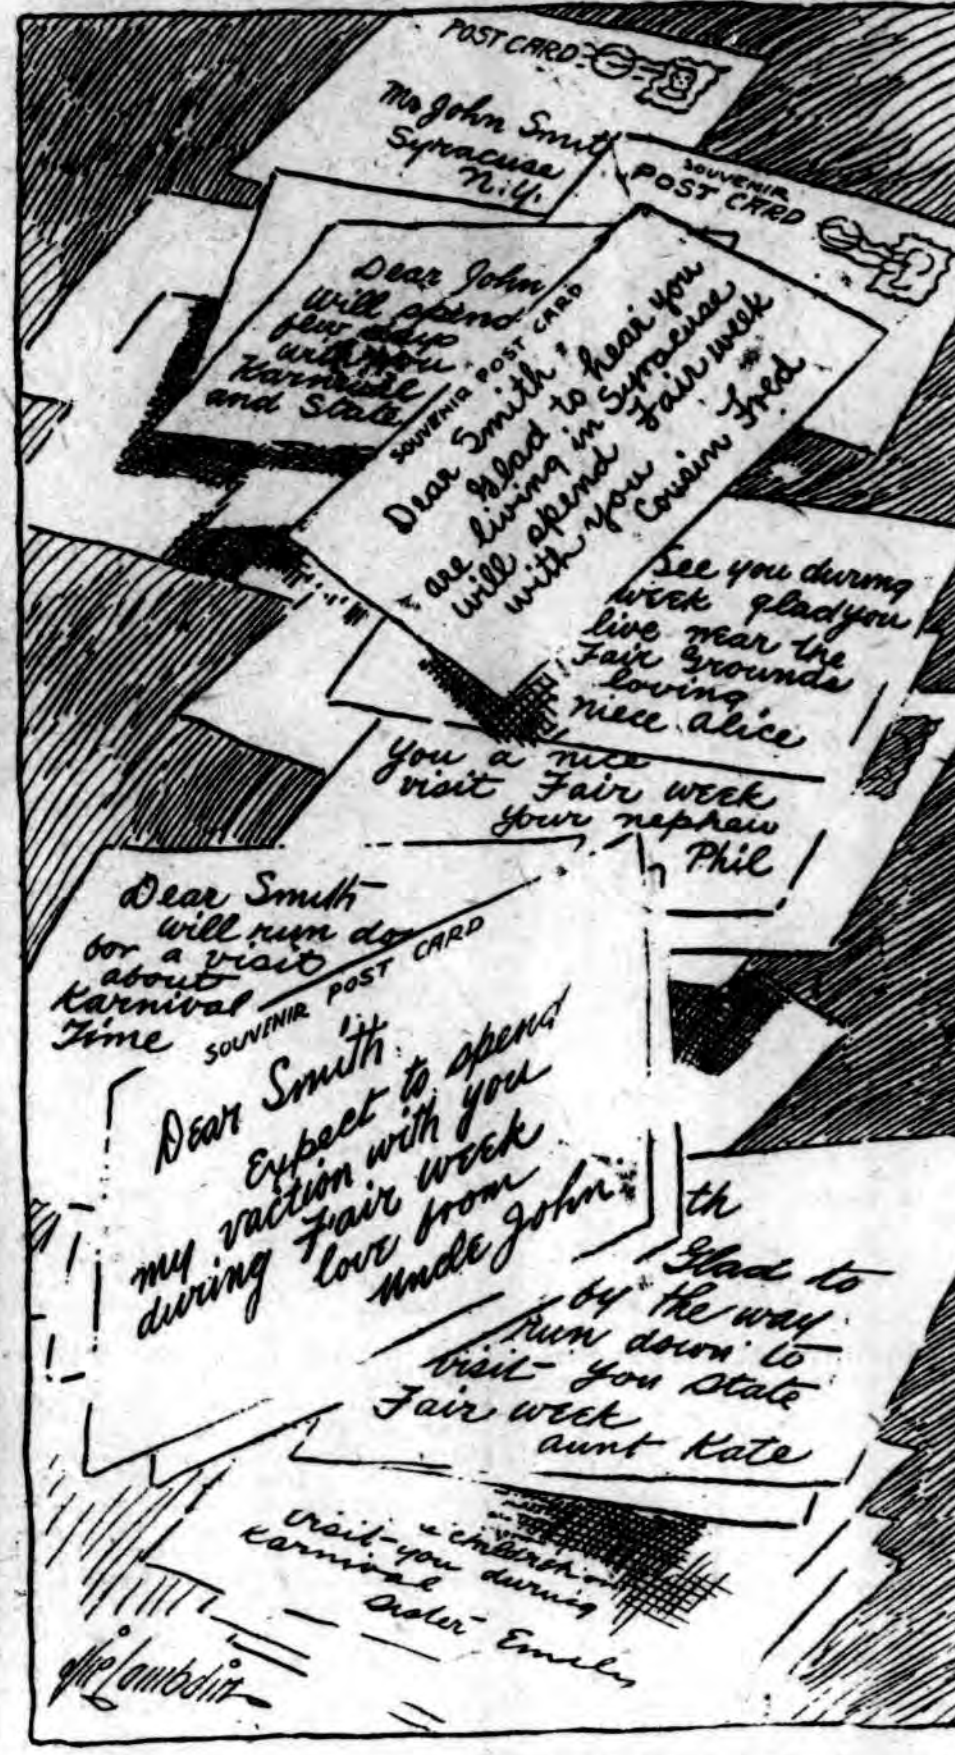 POST CARD
Mr John Smit
Syracuse
N.Y.
SOUVENIR
POST CARD
Dear John
will spend
few days
with you
Karnival
and State
SOUVENIR POST CARD
Dear Smith
Glad to hear you
are living in Syracuse
will spend Fair week
with you
Cousin Fred
See you during
week glad you
live near the
Fair Grounds
loving
niece Alice
you a nice
visit Fair week
your nephew
Phil
Dear Smith
will run do
for a visit
about
Karnival
Time
SOUVENIR POST CARD
Dear Smith
Expect to spend
my vaction with you
during Fair week
love from
Uncle John
th
Glad to
by the way
run down to
visit you State
Fair week
aunt Kate
& children
visit you during
Karnival
Sister Emily
Lambdin